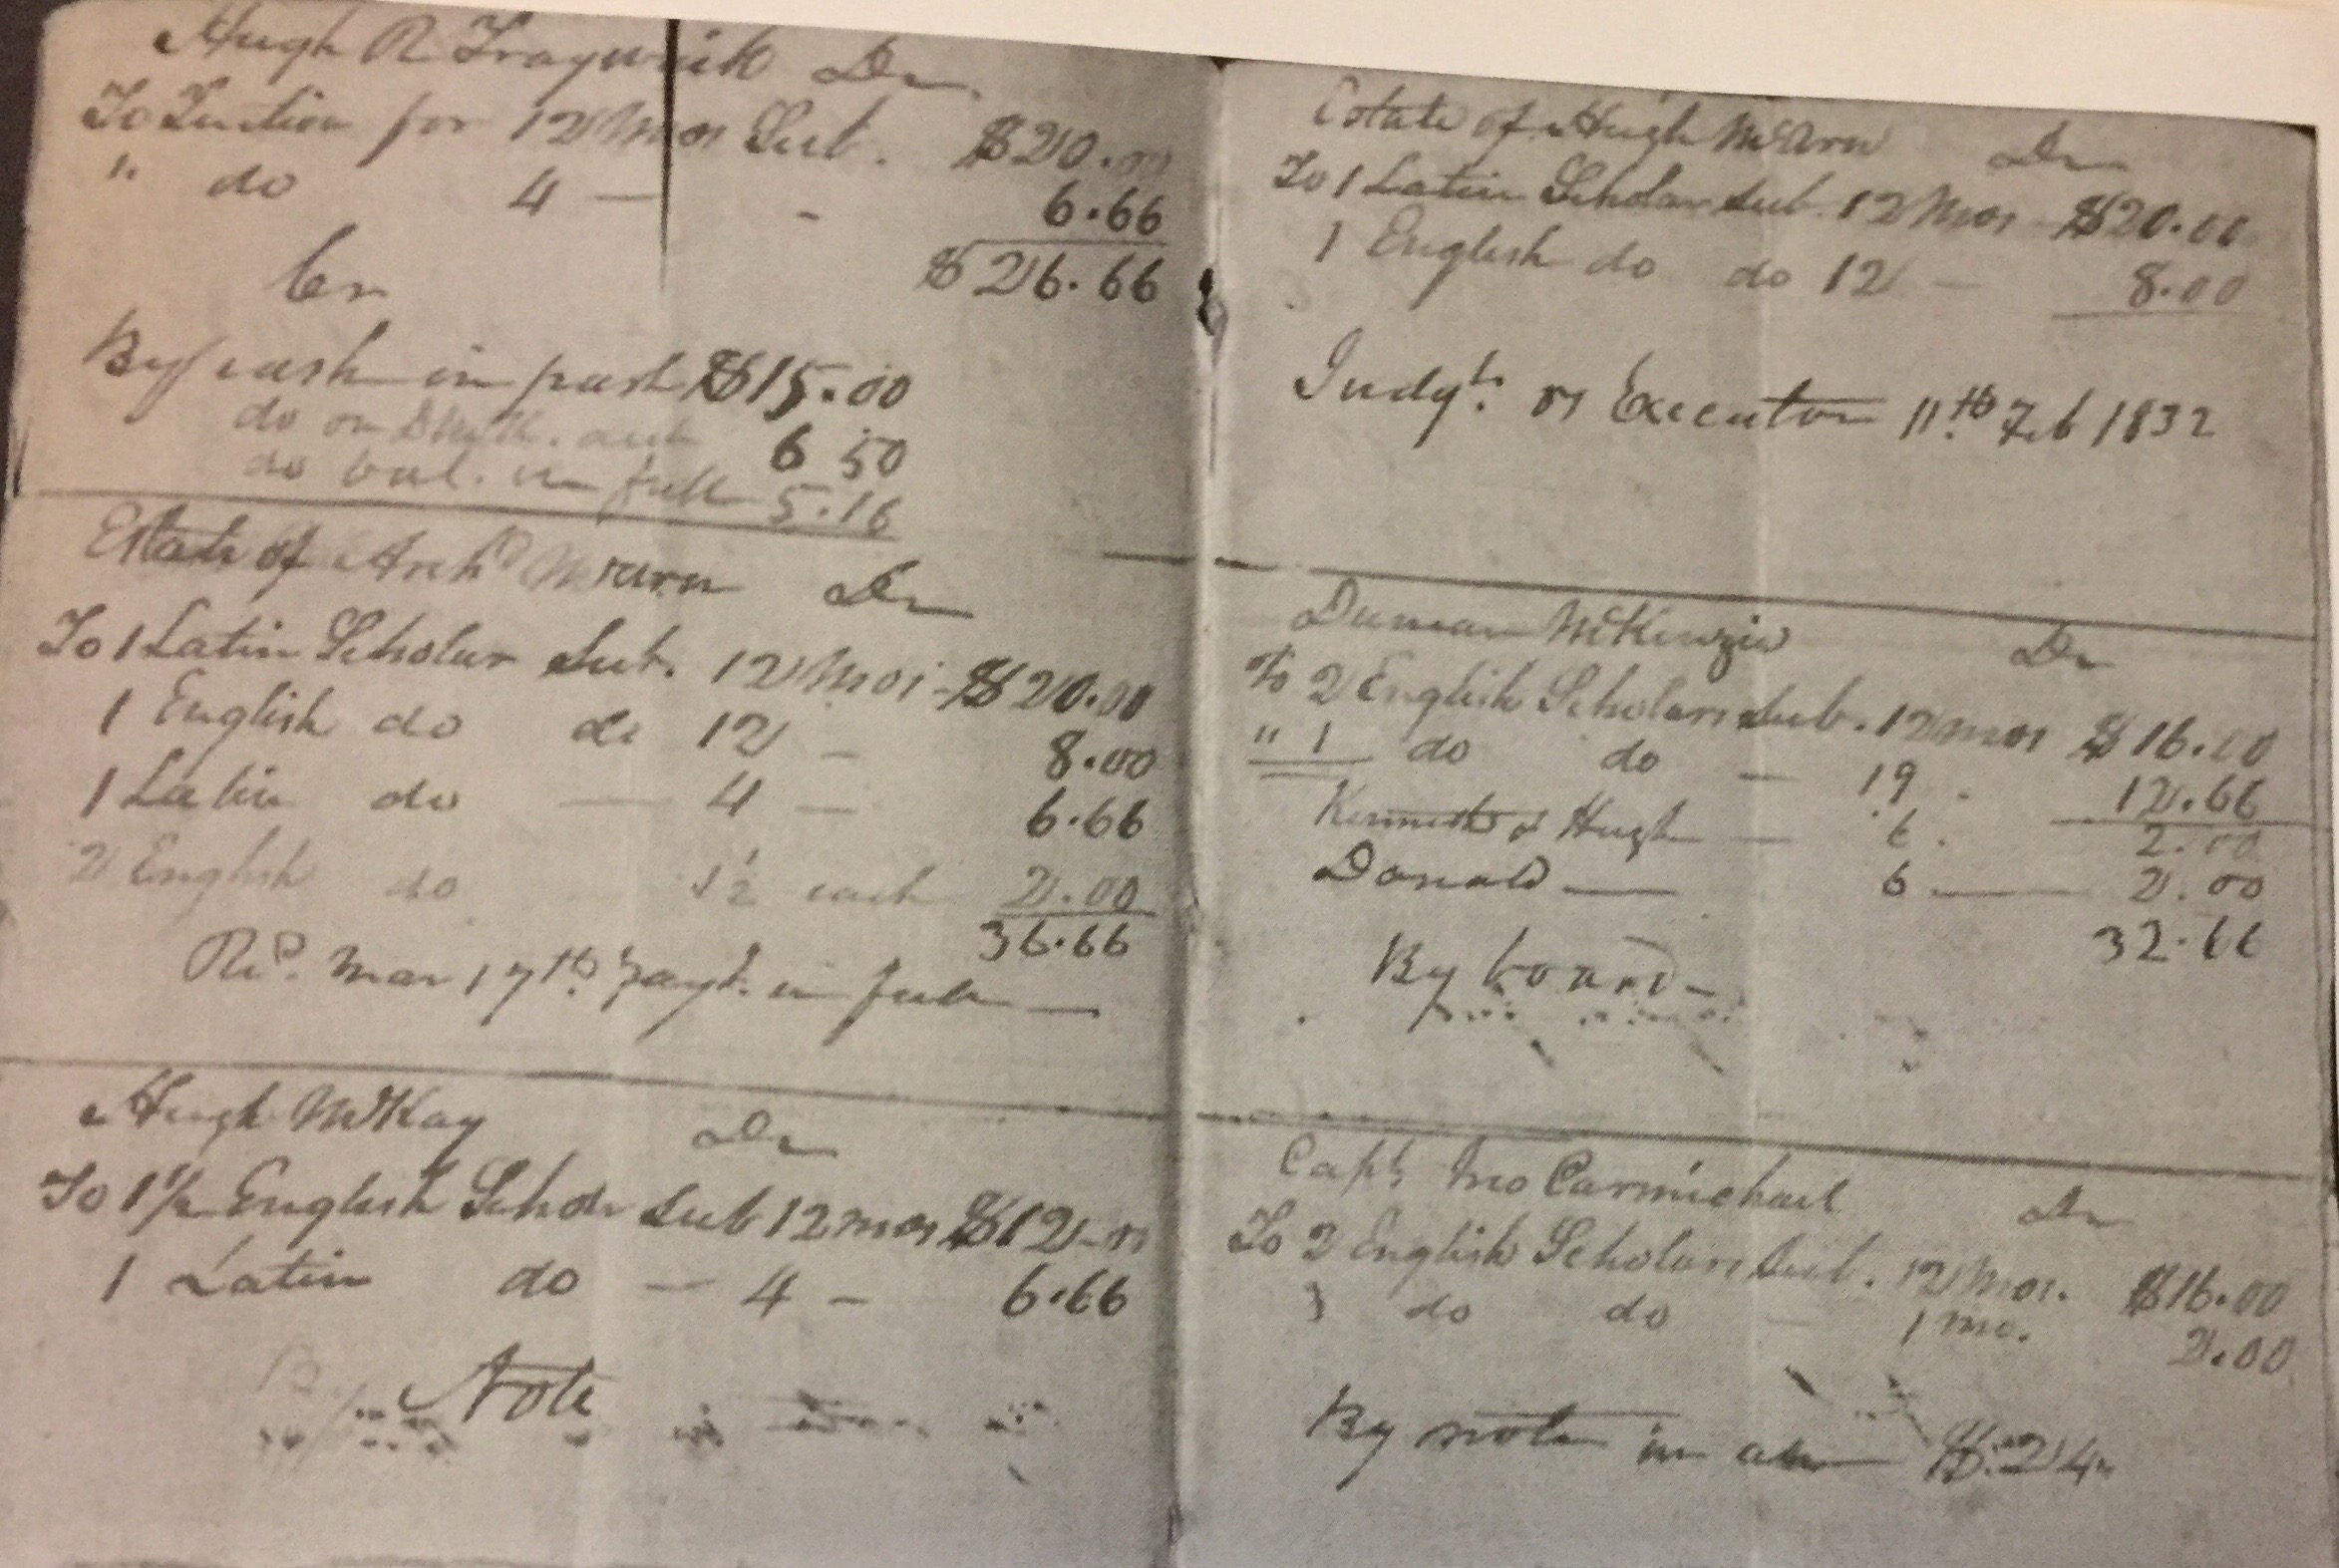 Hugh R Traywick Dr
To Tuition for 12 Mos Sub. $20.00
" do 4 — - 6.66
$26.66
Cr
By cash in part $15.00
do on 6 50
do bal. in full 5.16
Estate of Archd McArn Dr
To 1 Latin Scholar Sub. 12 Mos - $20.00
1 English do do 12 - 8.00
1 Latin do — 4 — 6.66
2 English do 1½ each 2.00
36.66
Recd. Mar 17th. payt. in full —
Hugh McKay Dr
To 1½ English Schol Sub 12 mos $12.00
1 Latin do — 4 - 6.66
Note
Estate of Hugh McArn Dr
To 1 Latin Scholar Sub. 12 Mos - $20.00
1 English do do 12 - 8.00
Judgt. vs Executor 11th Feb 1832
Duncan McKenzie Dr
To 2 English Scholars Sub. 12 mos $16.00
" 1 do do — 19 . 12.66
Kenneth & Hugh — 6 . 2.00
Donald — 6 — 2.00
32.66
By board -
Capt. Jno Carmichael Dr
To 2 English Scholars Sub. 12 Mos. $16.00
3 do do - 1 mo. 2.00
By note in $24